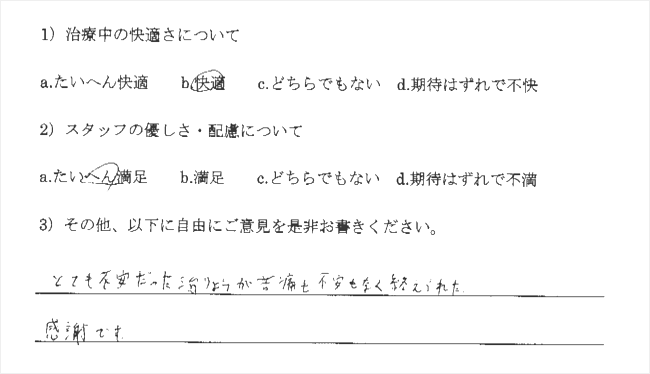 1）治療中の快適さについて
a.たいへん快適 b.快適 c.どちらでもない d.期待はずれで不快
2）スタッフの優しさ・配慮について
a.たいへん満足 b.満足 c.どちらでもない d.期待はずれで不満
3）その他、以下に自由にご意見を是非お書きください。
とても不安だった治りょうが苦痛も不安もなく終えられた
感謝です